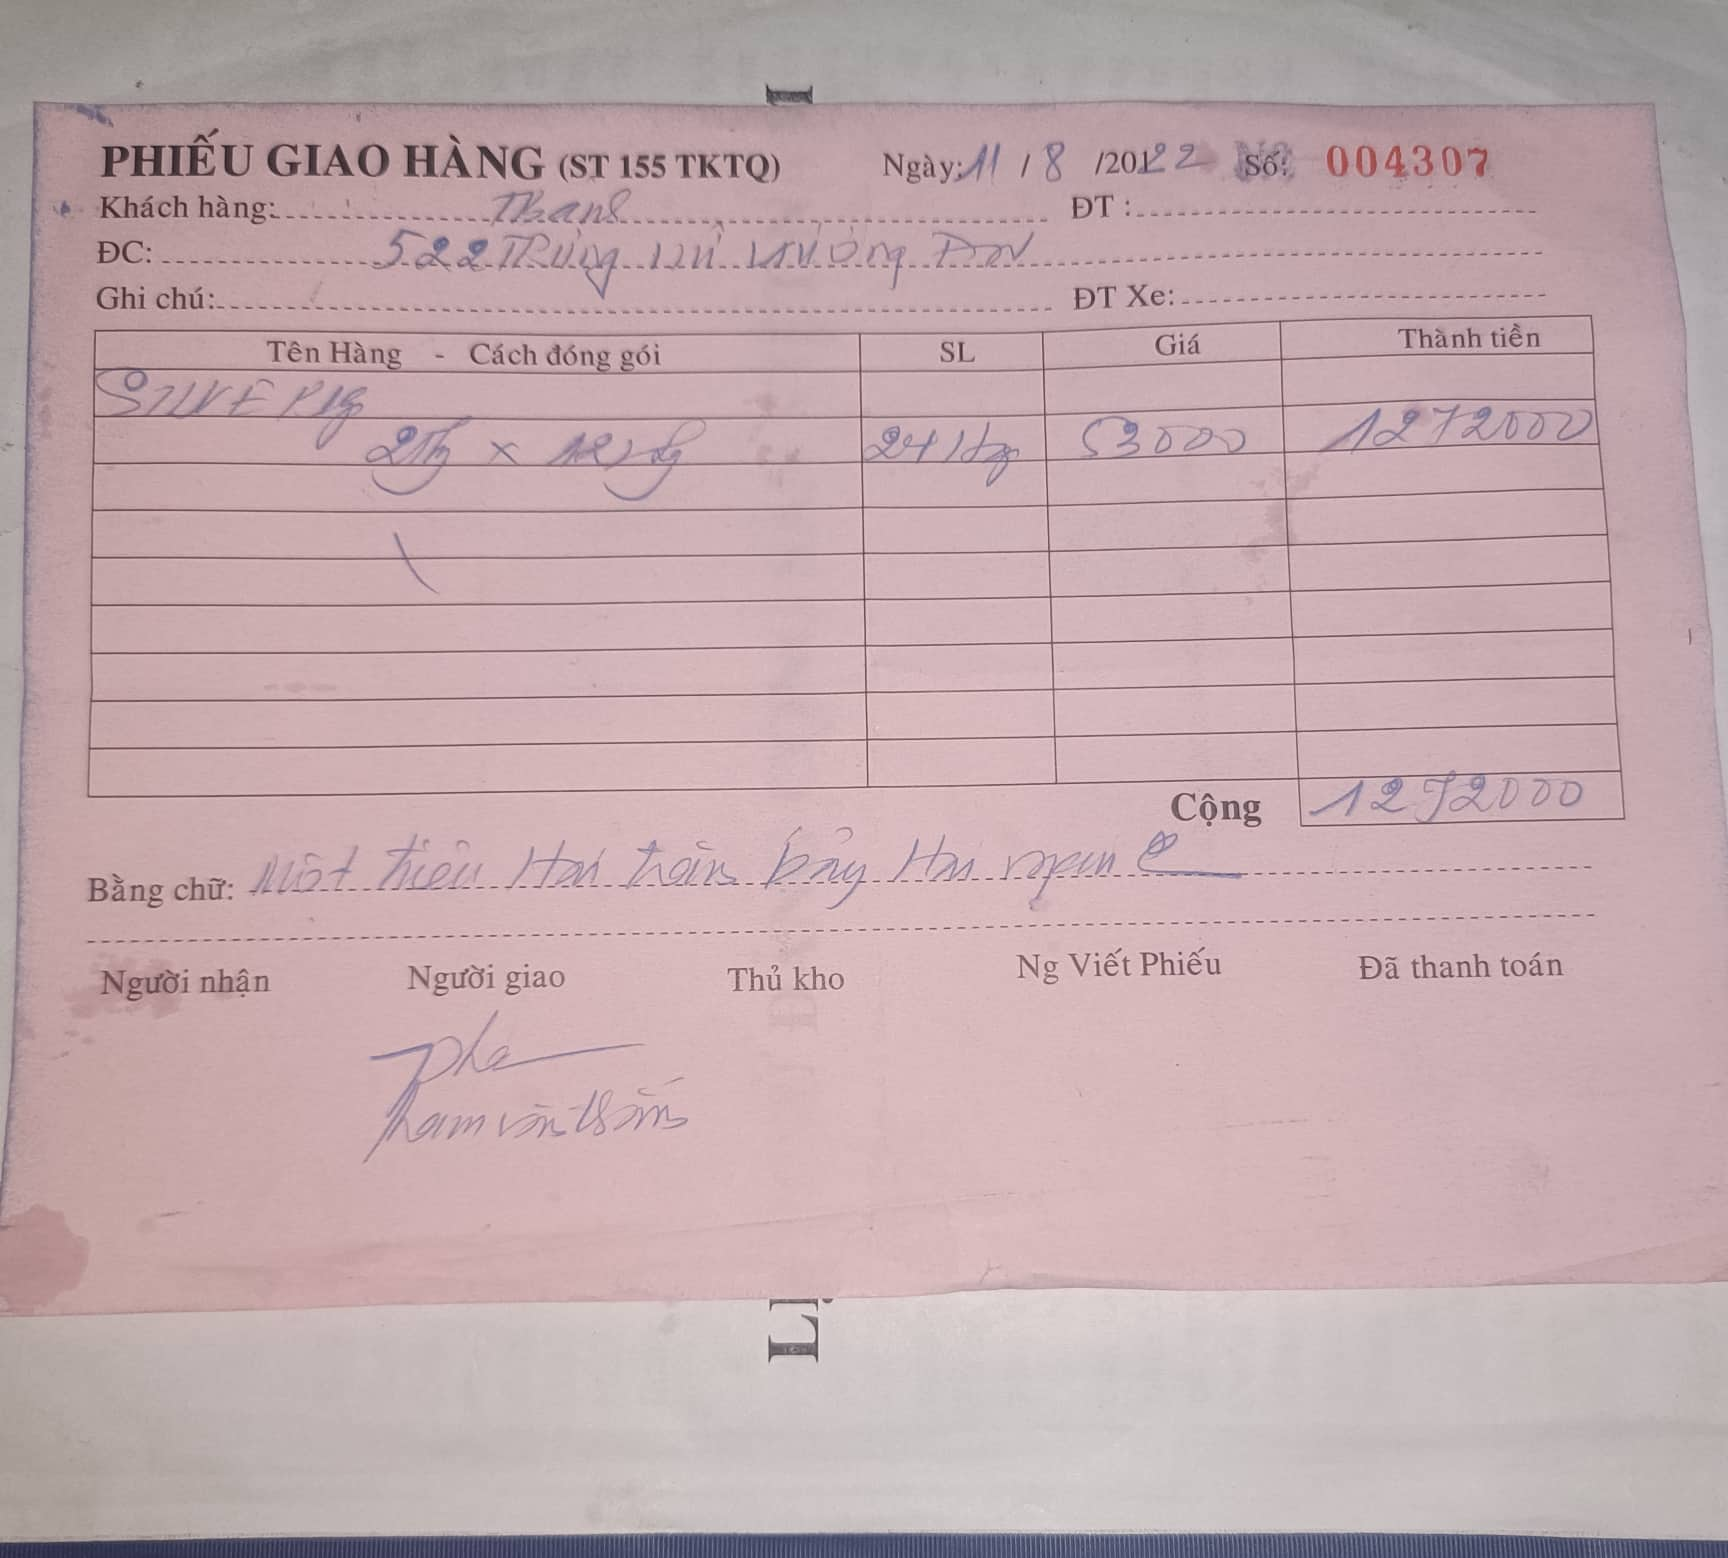 PHIẾU GIAO HÀNG (ST 155 TKTQ) Ngày: 11 / 8 /20122 Số: 004307
Khách hàng: Thanh ĐT :
ĐC: 522 Trưng nữ vương ĐN
Ghi chú: ĐT Xe:
Tên Hàng - Cách đóng gói SL Giá Thành tiền
2 Th x 12 24 53000 1272000
Cộng 1272000
Bằng chữ: Một triệu Hai trăm bảy Hai ngàn
Người nhận Người giao Thủ kho Ng Viết Phiếu Đã thanh toán
Phạm văn
L